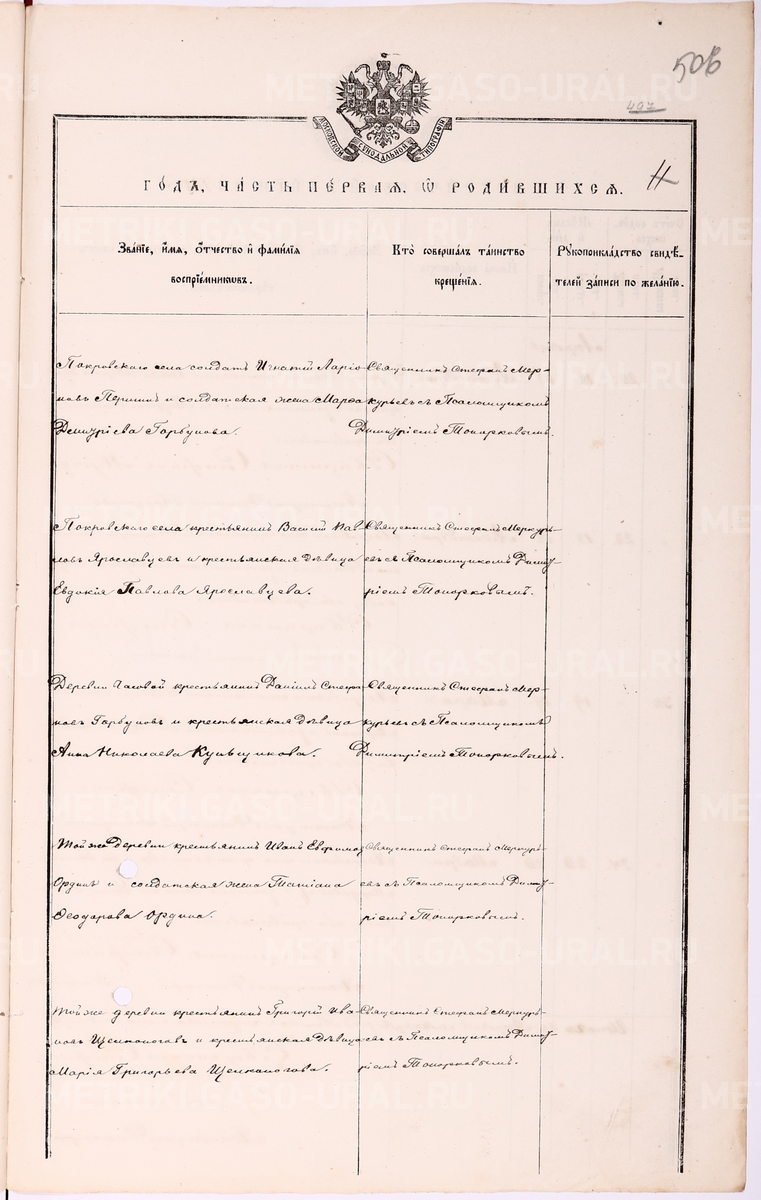 506
497
МОСКОВСКОЙ СѴНОДАЛЬНОЙ ТИПОГРАФІИ
ГОДЪ, ЧАСТЬ ПЕРВАЯ, Ѽ РОДИВШИХСЯ.
11
Званїе, имя, отчество и фамилїя
воспрїемниковъ.
Кто совершалъ таинство
крещенїя.
Рукоприкладство свидѣ-
телей записи по желанїю.
Покровскаго села солдатъ Игнатій Ларіо-
новъ Першинъ и солдатская жена Марѳа
Димитріева Горбунова.
Священникъ Стефанъ Мер-
курьевъ съ Псаломщикомъ
Димитріемъ Топорковымъ.
Покровскаго села крестьянинъ Василій Пав
ловъ Ярославцевъ и крестьянская дѣвица
Евдокія Павлова Ярославцева.
Священникъ Стефанъ Меркурь-
евъ съ Псаломщикомъ Димит-
ріемъ Топорковымъ.
Деревни Часовой крестьянинъ Даніилъ Стефа-
новъ Горбуновъ и крестьянская дѣвица
Анна Николаева Кульщикова.
Священникъ Стефанъ Мер-
курьевъ съ Псаломщикомъ
Димитріемъ Топорковымъ.
Той же деревни крестьянинъ Иванъ Евфимовъ
Ординъ и солдатская жена Татіана
Ѳеодорова Ордина.
Священникъ Стефанъ Меркурь-
евъ съ Псаломщикомъ Димит-
ріемъ Топорковымъ.
Той же деревни крестьянинъ Григорій Ива
новъ Щелконоговъ и крестьянская дѣвица
Марія Григорьева Щелконогова.
Священникъ Стефанъ Меркурь-
евъ съ Псаломщикомъ Димит-
ріемъ Топорковымъ.
METRIKI.GASO-URAL.RU